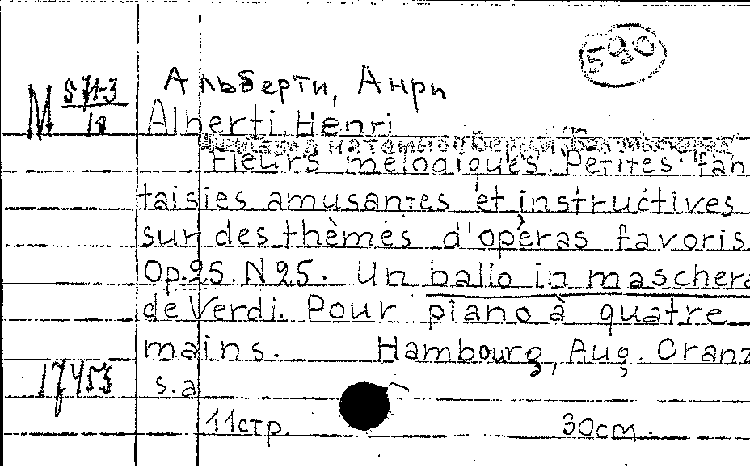 590
Альберти, Анри
M
Alberti, Henri
Fleurs mélodiques. Petites fan
taisies amusantes et instructives
sur des thèmes d'opéras favoris.
Op.25 N25. Un ballo in maschera
de Verdi. Pour piano à quatre
mains. Hambourg, Aug. Cranz
s.a
17453
11стр. 30см.